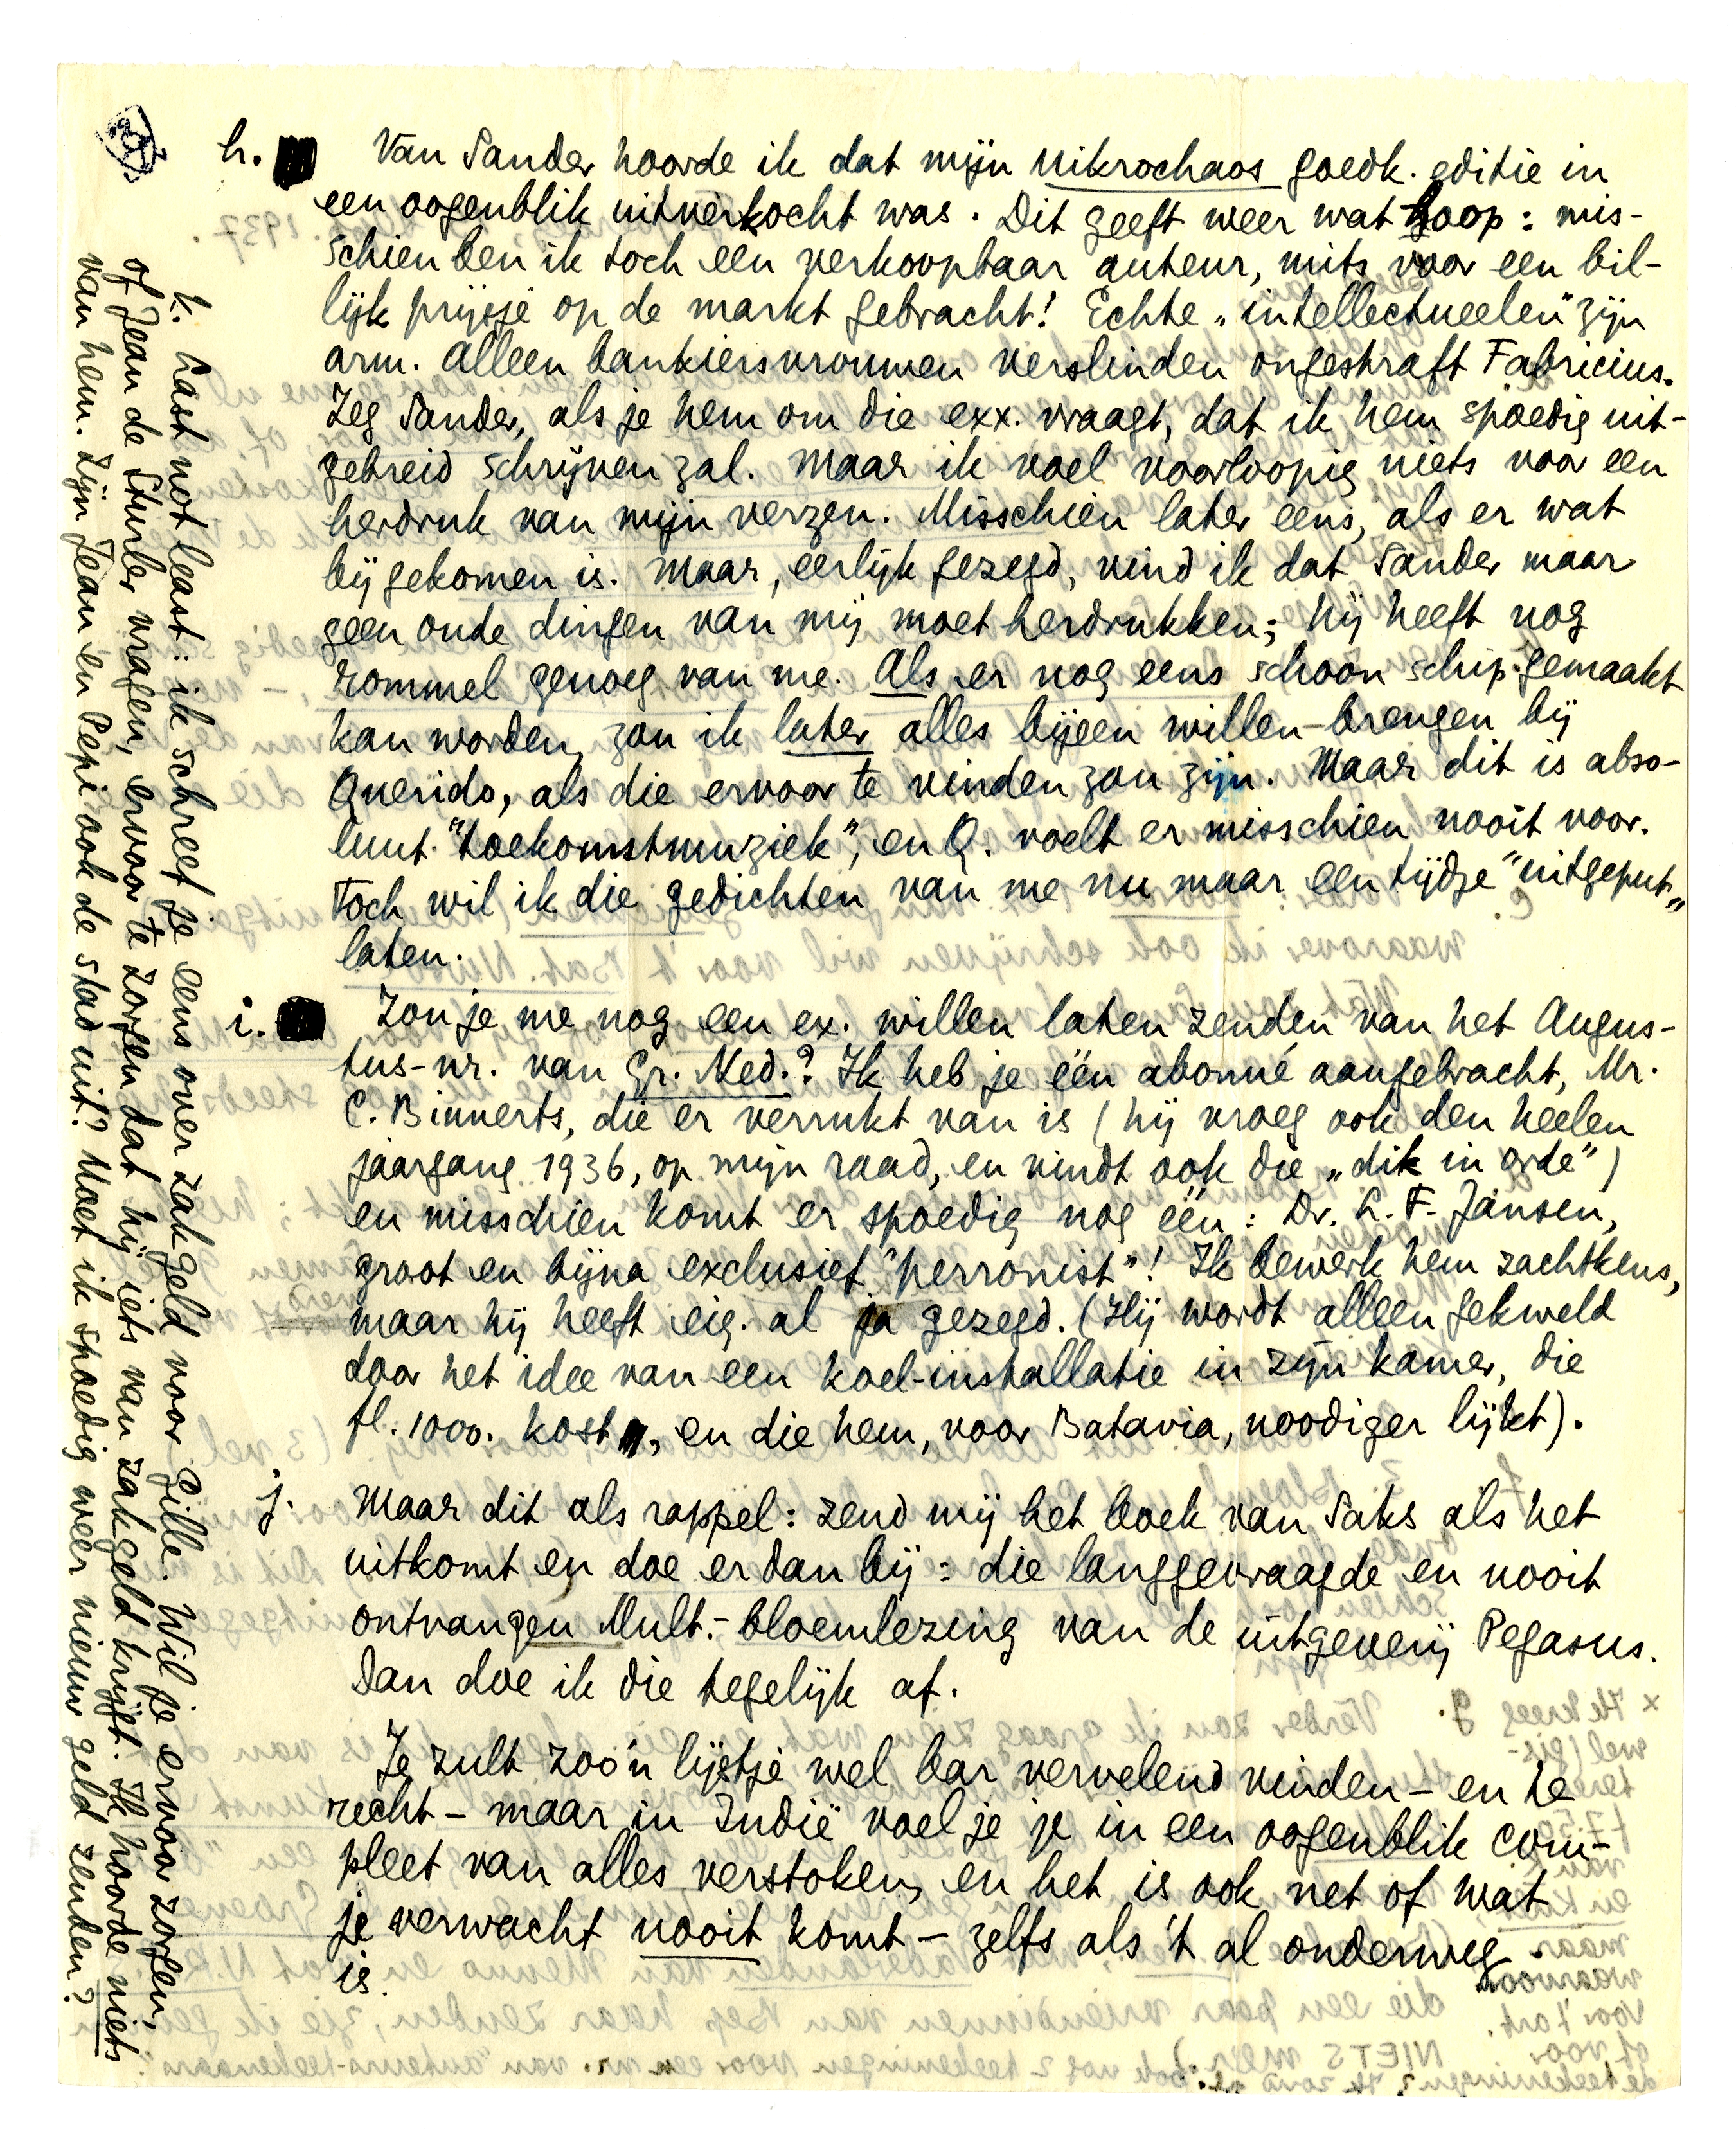 h. Van Sander hoorde ik dat mijn Mikrochaos goedk. editie in
een oogenblik uitverkocht was. Dit geeft weer wat hoop: mis-
schien ben ik toch een verkoopbaar auteur, mits voor een bil-
lijk prijsje op de markt gebracht! Echte „intellectueelen" zijn
arm. Alleen bankiersvrouwen verslinden ongestraft Fabricius.
Zeg Sander, als je hem om die exx. vraagt, dat ik hem spoedig uit-
gebreid schrijven zal. Maar ik voel voorloopig niets voor een
herdruk van mijn verzen. Misschien later eens, als er wat
bijgekomen is. Maar, eerlijk gezegd, vind ik dat Sander maar
geen oude dingen van mij moet herdrukken; hij heeft nog
rommel genoeg van me. Als er nog eens schoon schip gemaakt
kan worden, zou ik later alles bijeen willen brengen bij
Querido, als die ervoor te vinden zou zijn. Maar dit is abso-
luut "toekomstmuziek", en Q. voelt er misschien nooit voor.
Toch wil ik die gedichten van me nu maar een tijdje "uitgeput"
laten.
i. Zou je me nog een ex. willen laten zenden van het Augus-
tus-nr. van Gr. Ned.? Ik heb je één abonné aangebracht, Mr.
C. Binnerts, die er verrukt van is (hij vroeg ook den heelen
jaargang 1936, op mijn raad, en vindt ook die „dik in orde")
en misschien komt er spoedig nog één: Dr. L. F. Jansen,
groot en bijna exclusief "perronist"! Ik bewerk hem zachtkens,
maar hij heeft eig. al ja gezegd. (Hij wordt alleen gekweld
door het idee van een koel-installatie in zijn kamer, die
fl. 1000. kost, en die hem, voor Batavia, noodiger lijkt).
j. Maar dit als rappel: zend mij het boek van Saks als het
uitkomt en doe er dan bij: die langgevraagde en nooit
ontvangen Mult.-bloemlezing van de uitgeverij Pegasus.
Dan doe ik die tegelijk af.
Je zult zoo'n lijstje wel bar vervelend vinden – en te
recht – maar in Indië voel je je in een oogenblik com-
pleet van alles verstoken, en het is ook net of wat
je verwacht nooit komt – zelfs als 't al onderweg
is.
k. Last not least: ik schreef je eens over zakgeld voor Gille. Wil je ervoor zorgen,
of Jean de Sturler vragen, ervoor te zorgen dat hij iets van zakgeld krijgt. Ik hoorde niets
van hem. Zijn Jean en Pepi ook de stad uit? Moet ik spoedig weer nieuw geld zenden?